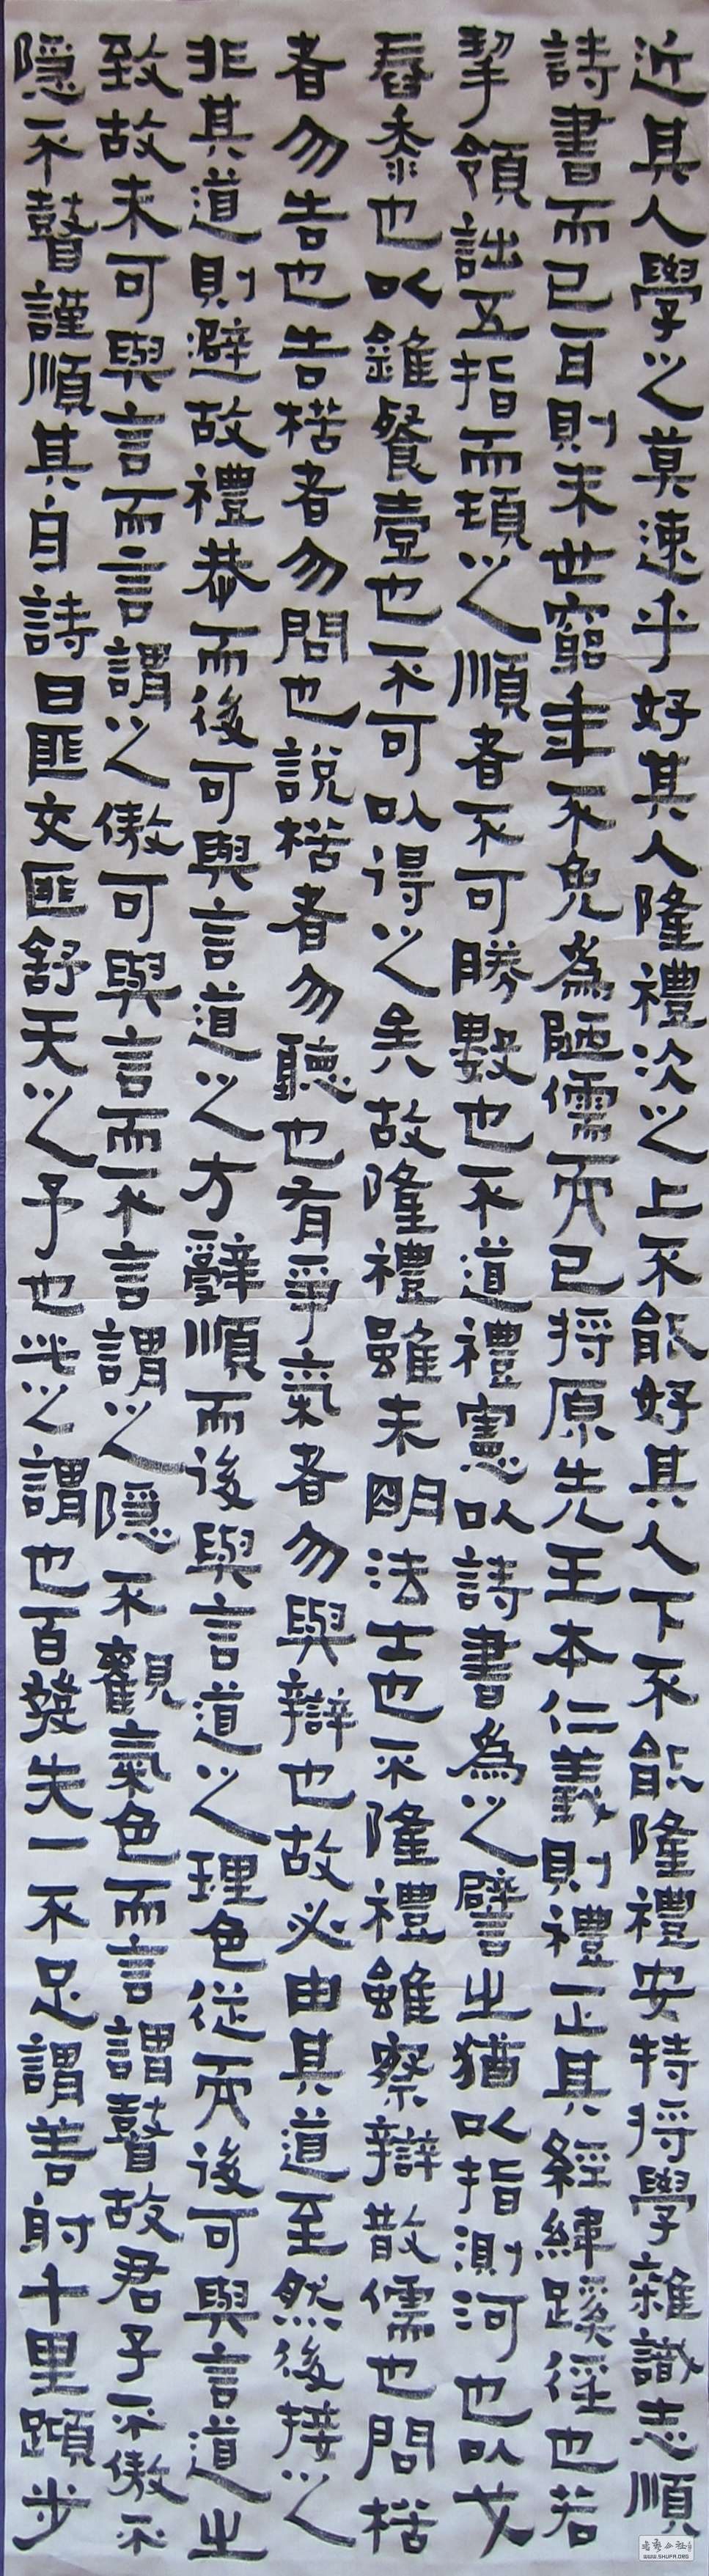 近其人學之莫速乎好其人隆禮次之上不能好其人下不能隆禮安特将學雜識志順
詩書而已耳則末世窮年不免為陋儒而已将原先王本仁義則禮正其經緯蹊徑也若
挈領詘五指而頓之順者不可勝數也不道禮憲以詩書為之譬之猶以指測河也以戈
舂黍也以錐餐壺也不可以得之矣故隆禮雖未明法士也不隆禮雖察辯散儒也問楛
者勿告也告楛者勿問也說楛者勿聽也有爭氣者勿與辯也故必由其道至然後接之
非其道則避故禮恭而後可與言道之方辭順而後與言道之理色從而後可與言道之
致故未可與言而言謂之傲可與言而不言謂之隱不觀氣色而言謂瞽故君子不傲不
隱不瞽謹順其身詩曰匪交匪舒天之予也此之謂也百發失一不足謂善射千里蹞步
WWW.SHUFA.ORG